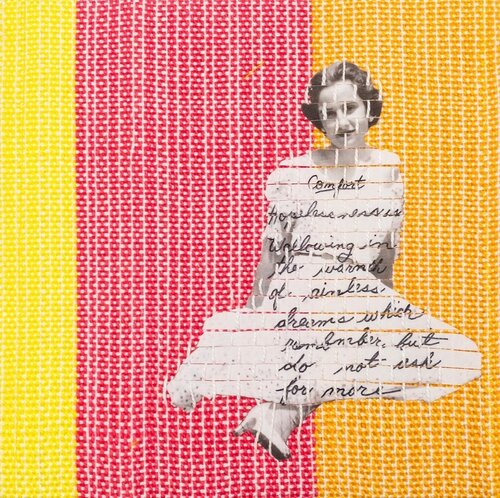 Comfort
is
Wallowing in
the warmth
of
dreams which
remember, but
do not ask
for more